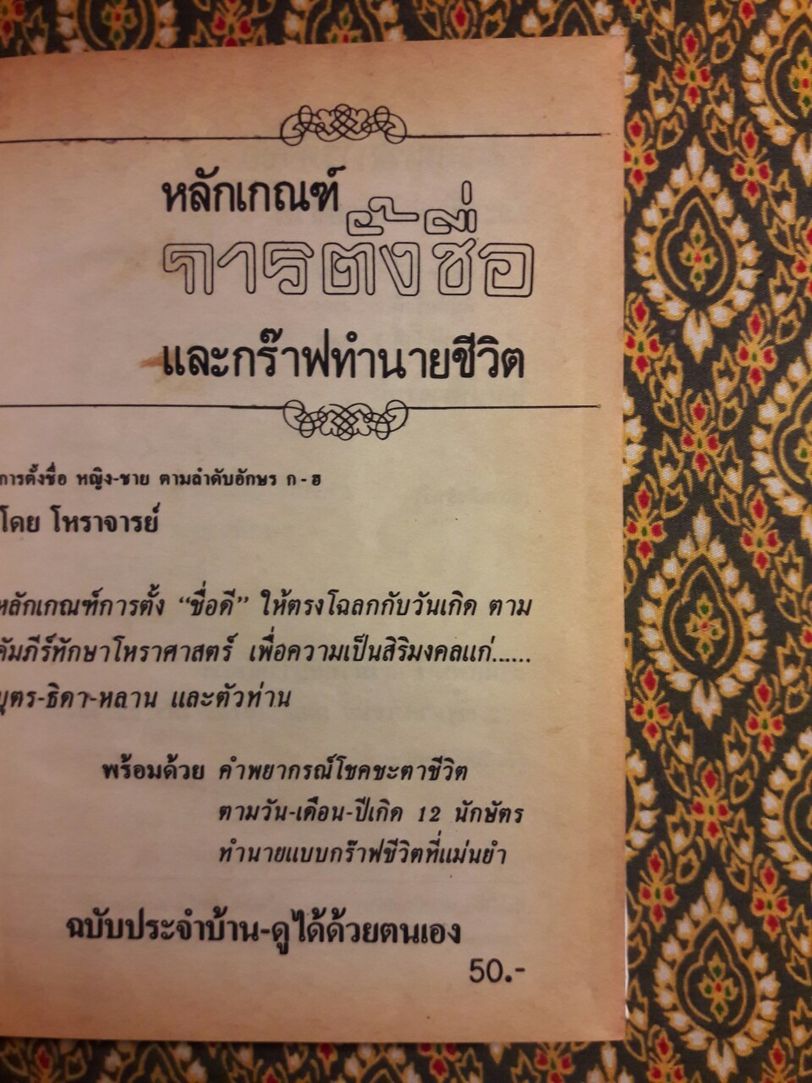 หลักเกณฑ์
การตั้งชื่อ
และกร๊าฟทำนายชีวิต
การตั้งชื่อ หญิง-ชาย ตามลำดับอักษร ก - ฮ
โดย โหราจารย์
หลักเกณฑ์การตั้ง “ชื่อดี” ให้ตรงโฉลกกับวันเกิด ตาม
คัมภีร์ทักษาโหราศาสตร์ เพื่อความเป็นสิริมงคลแก่......
บุตร-ธิดา-หลาน และตัวท่าน
พร้อมด้วย คำพยากรณ์โชคชะตาชีวิต
ตามวัน-เดือน-ปีเกิด 12 นักษัตร
ทำนายแบบกร๊าฟชีวิตที่แม่นยำ
ฉบับประจำบ้าน-ดูได้ด้วยตนเอง
50.-